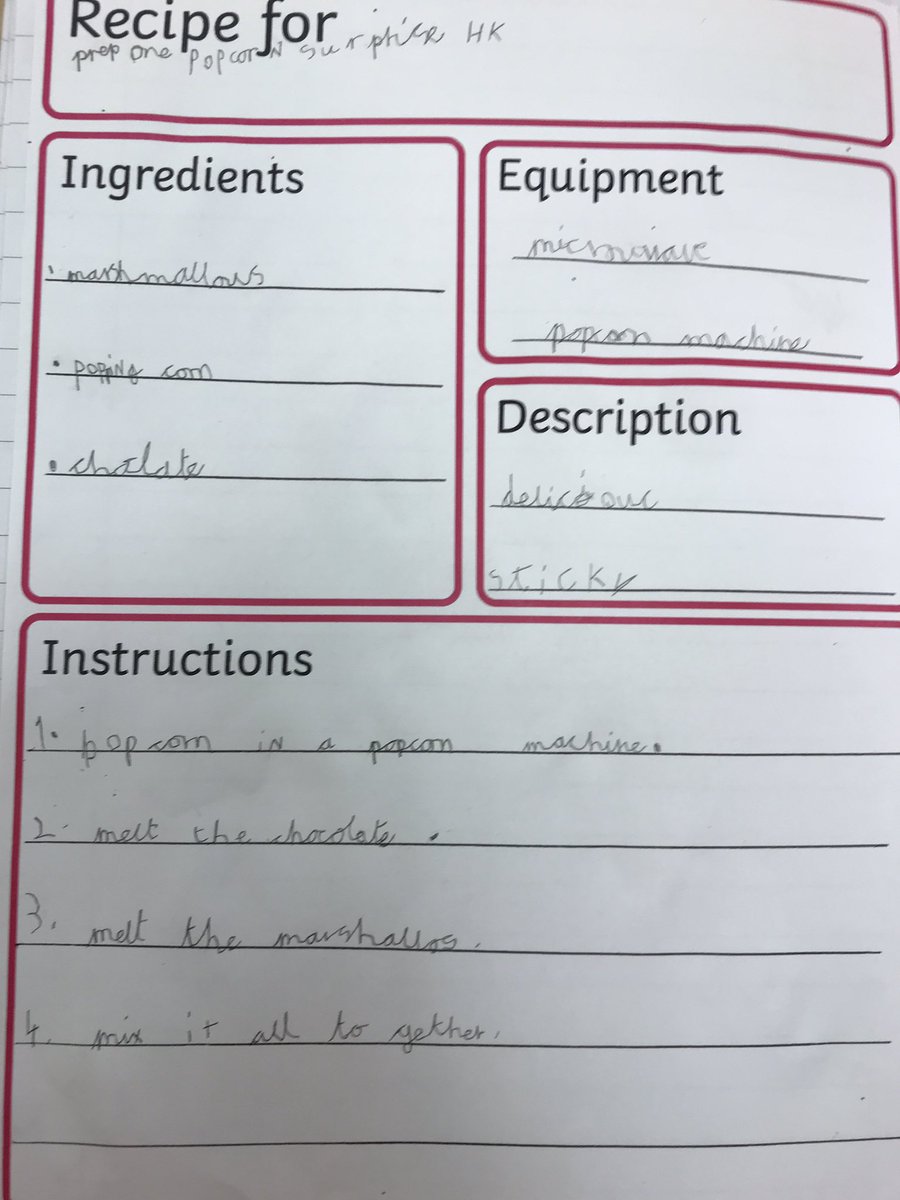 Recipe for
prep one popcorn surprise HK
Ingredients
• marshmallows
• popping corn
• choclate
Equipment
microwave
popcorn machine
Description
delicious
sticky
Instructions
1. popcorn in a popcorn machine.
2. melt the chocolate.
3. melt the marshallos.
4. mix it all to gether.